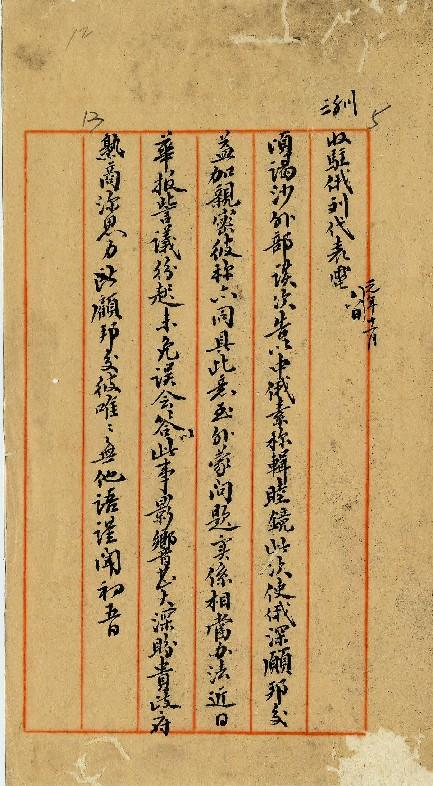 收駐俄劉代表電 元年十一月八日
頃謁沙外部談次告以中俄素稱輯睦鏡此次使俄深願邦交
益加親密彼稱亦同具此意至外蒙問題實係相當办法近日
華报訾議纷起未免误会答以此事影響甚大深盼貴政府
熟商深思力顧邦交彼唯唯無他語謹聞初五日
12
13
5